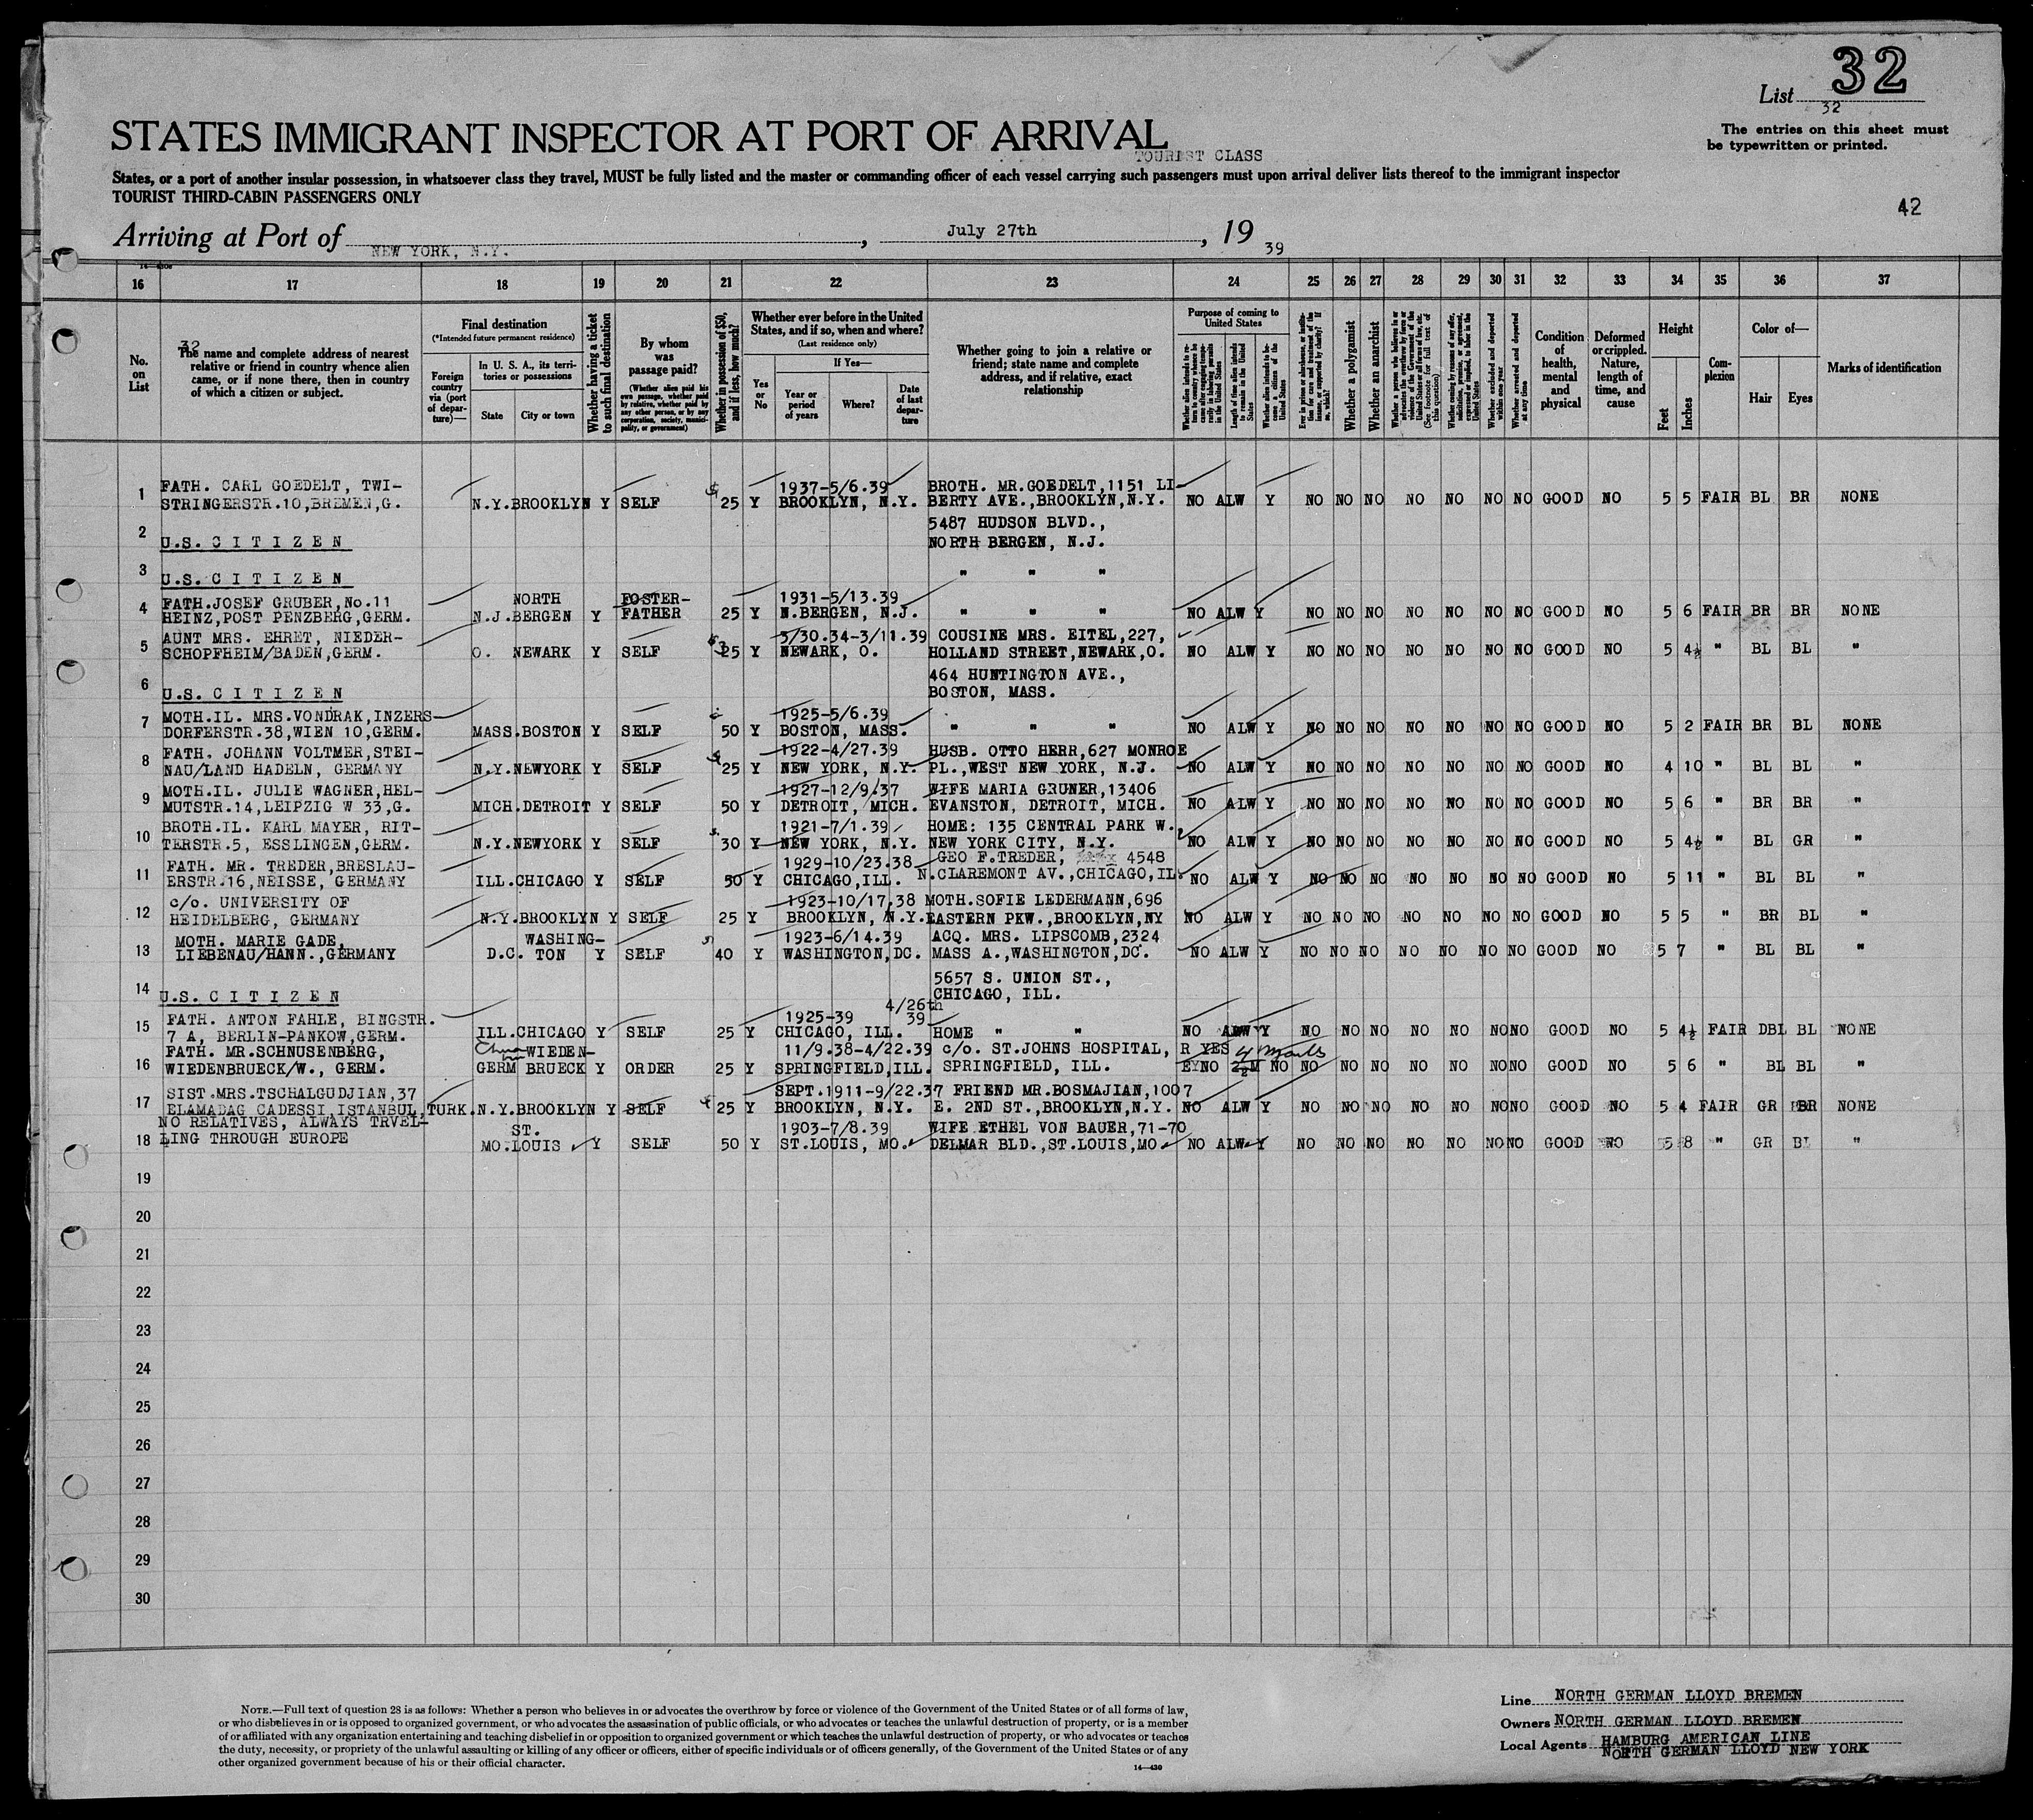 32
List 32
The entries on this sheet must
be typewritten or printed.
STATES IMMIGRANT INSPECTOR AT PORT OF ARRIVAL
TOURIST CLASS
States, or a port of another insular possession, in whatsoever class they travel, MUST be fully listed and the master or commanding officer of each vessel carrying such passengers must upon arrival deliver lists thereof to the immigrant inspector
TOURIST THIRD-CABIN PASSENGERS ONLY
42
Arriving at Port of NEW YORK, N.Y., July 27th, 19 39
16 17 18 19 20 21 22 23 24 25 26 27 28 29 30 31 32 33 34 35 36 37
No. on List
32
The name and complete address of nearest relative or friend in country whence alien came, or if none there, then in country of which a citizen or subject.
Final destination
(*Intended future permanent residence)
Foreign country via (port of departure)—
In U. S. A., its territories or possessions
State City or town
Whether having a ticket to such final destination
By whom was passage paid?
(Whether alien paid his own passage, whether paid by relative, whether paid by any other person, or by any corporation, society, municipality, or government)
Whether in possession of $50, and if less, how much?
Whether ever before in the United States, and if so, when and where?
(Last residence only)
Yes or No
If Yes—
Year or period of years
Where?
Date of last departure
Whether going to join a relative or friend; state name and complete address, and if relative, exact relationship
Purpose of coming to United States
Whether alien intends to return to country whence he came after engaging temporarily in laboring pursuits in the United States
Length of time alien intends to remain in the United States
Whether alien intends to become a citizen of the United States
Ever in prison or almshouse, or institution for care and treatment of the insane, or supported by charity? If so, which?
Whether a polygamist
Whether an anarchist
Whether a person who believes in or advocates the overthrow by force or violence of the Government of the United States or all forms of law, etc. (See footnote for full text of this question)
Whether coming by reasons of any offer, solicitation, promise, or agreement, expressed or implied, to labor in the United States
Whether excluded and deported within one year
Whether arrested and deported at any time
Condition of health, mental and physical
Deformed or crippled. Nature, length of time, and cause
Height
Feet Inches
Complexion
Color of—
Hair Eyes
Marks of identification
1 FATH. CARL GOEDELT, TWI- 1937-5/6.39 BROTH. MR.GOEDELT,1151 LI-
STRINGERSTR.10,BREMEN,G. N.Y.BROOKLYN Y SELF 25 Y BROOKLYN, N.Y. BERTY AVE.,BROOKLYN,N.Y. NO ALW Y NO NO NO NO NO NO NO GOOD NO 5 5 FAIR BL BR NONE
5487 HUDSON BLVD.,
2 U.S. C I T I Z E N NORTH BERGEN, N.J.
3 U.S. C I T I Z E N " " "
4 FATH.JOSEF GRUBER,No.11 NORTH FOSTER- 1931-5/13.39
HEINZ,POST PENZBERG,GERM. N.J.BERGEN Y FATHER 25 Y N.BERGEN, N.J. " " " NO ALW Y NO NO NO NO NO NO NO GOOD NO 5 6 FAIR BR BR NONE
5 AUNT MRS. EHRET, NIEDER- 3/30.34-3/11.39 COUSINE MRS. EITEL,227,
SCHOPFHEIM/BADEN,GERM. O. NEWARK Y SELF 25 Y NEWARK, O. HOLLAND STREET,NEWARK,O. NO ALW Y NO NO NO NO NO NO NO GOOD NO 5 4½ " BL BL "
464 HUNTINGTON AVE.,
6 U.S. C I T I Z E N BOSTON, MASS.
7 MOTH.IL. MRS.VONDRAK,INZERS- 1925-5/6.39
DORFERSTR.38,WIEN 10,GERM. MASS.BOSTON Y SELF 50 Y BOSTON, MASS. " " " NO ALW Y NO NO NO NO NO NO NO GOOD NO 5 2 FAIR BR BL NONE
8 FATH. JOHANN VOLTMER,STEI- 1922-4/27.39 HUSB. OTTO HERR,627 MONROE
NAU/LAND HADELN, GERMANY N.Y.NEWYORK Y SELF 25 Y NEW YORK, N.Y. PL.,WEST NEW YORK, N.J. NO ALW Y NO NO NO NO NO NO NO GOOD NO 4 10 " BL BL "
9 MOTH.IL. JULIE WAGNER,HEL- 1927-12/9.37 WIFE MARIA GRUNER,13406
MUTSTR.14,LEIPZIG W 33,G. MICH.DETROIT Y SELF 50 Y DETROIT, MICH. EVANSTON, DETROIT, MICH. NO ALW Y NO NO NO NO NO NO NO GOOD NO 5 6 " BR BR "
10 BROTH.IL. KARL MAYER, RIT- 1921-7/1.39 HOME: 135 CENTRAL PARK W.,
TERSTR.5, ESSLINGEN,GERM. N.Y.NEWYORK Y SELF 30 Y NEW YORK, N.Y. NEW YORK CITY, N.Y. NO ALW Y NO NO NO NO NO NO NO GOOD NO 5 4½ " BL GR "
11 FATH. MR. TREDER,BRESLAU- 1929-10/23.38 GEO F.TREDER, 4548
ERSTR.16,NEISSE, GERMANY ILL.CHICAGO Y SELF 50 Y CHICAGO,ILL. N.CLAREMONT AV.,CHICAGO,IL. NO ALW Y NO NO NO NO NO NO NO GOOD NO 5 11 " BL BL "
12 c/o. UNIVERSITY OF 1923-10/17.38 MOTH.SOFIE LEDERMANN,696
HEIDELBERG, GERMANY N.Y.BROOKLYN Y SELF 25 Y BROOKLYN, N.Y. EASTERN PKW.,BROOKLYN,NY NO ALW Y NO NO NO NO NO NO NO GOOD NO 5 5 " BR BL "
13 MOTH. MARIE GADE, WASHING- 1923-6/14.39 ACQ. MRS. LIPSCOMB,2324
LIEBENAU/HANN.,GERMANY D.C. TON Y SELF 40 Y WASHINGTON,DC. MASS A.,WASHINGTON,DC. NO ALW Y NO NO NO NO NO NO NO GOOD NO 5 7 " BL BL "
5657 S. UNION ST.,
14 U.S. C I T I Z E N CHICAGO, ILL.
15 FATH. ANTON FAHLE, BINGSTR. 1925-39 4/26th 39
7 A, BERLIN-PANKOW,GERM. ILL.CHICAGO Y SELF 25 Y CHICAGO, ILL. HOME " " NO ALW Y NO NO NO NO NO NO NO GOOD NO 5 4½ FAIR DBL BL NONE
16 FATH. MR.SCHNUSENBERG, WIEDEN- 11/9.38-4/22.39 c/o. ST.JOHNS HOSPITAL, R YES 4 months
WIEDENBRUECK/W., GERM. GERM BRUECK Y ORDER 25 Y SPRINGFIELD,ILL. SPRINGFIELD, ILL. NO NO NO NO NO NO NO NO NO GOOD NO 5 6 " BL BL "
17 SIST.MRS.TSCHALGUDJIAN,37 SEPT.1911-9/22.37 FRIEND MR.BOSMAJIAN,1007
ELAMADAG CADESSI,ISTANBUL,TURK. N.Y.BROOKLYN Y SELF 25 Y BROOKLYN, N.Y. E. 2ND ST.,BROOKLYN,N.Y. NO ALW Y NO NO NO NO NO NO NO GOOD NO 5 4 FAIR GR BR NONE
18 NO RELATIVES, ALWAYS TRVEL- ST. 1903-7/8.39 WIFE ETHEL VON BAUER,71-70
LING THROUGH EUROPE MO.LOUIS Y SELF 50 Y ST.LOUIS, MO. DELMAR BLD.,ST.LOUIS,MO. NO ALW Y NO NO NO NO NO NO NO GOOD NO 5 8 " GR BL "
19
20
21
22
23
24
25
26
27
28
29
30
NOTE.—Full text of question 28 is as follows: Whether a person who believes in or advocates the overthrow by force or violence of the Government of the United States or of all forms of law,
or who disbelieves in or is opposed to organized government, or who advocates the assassination of public officials, or who advocates or teaches the unlawful destruction of property, or is a member
of or affiliated with any organization entertaining and teaching disbelief in or opposition to organized government or which teaches the unlawful destruction of property, or who advocates or teaches
the duty, necessity, or propriety of the unlawful assaulting or killing of any officer or officers, either of specific individuals or of officers generally, of the Government of the United States or of any
other organized government because of his or their official character.
14—430
Line NORTH GERMAN LLOYD BREMEN
Owners NORTH GERMAN LLOYD BREMEN
Local Agents HAMBURG AMERICAN LINE
NORTH GERMAN LLOYD NEW YORK